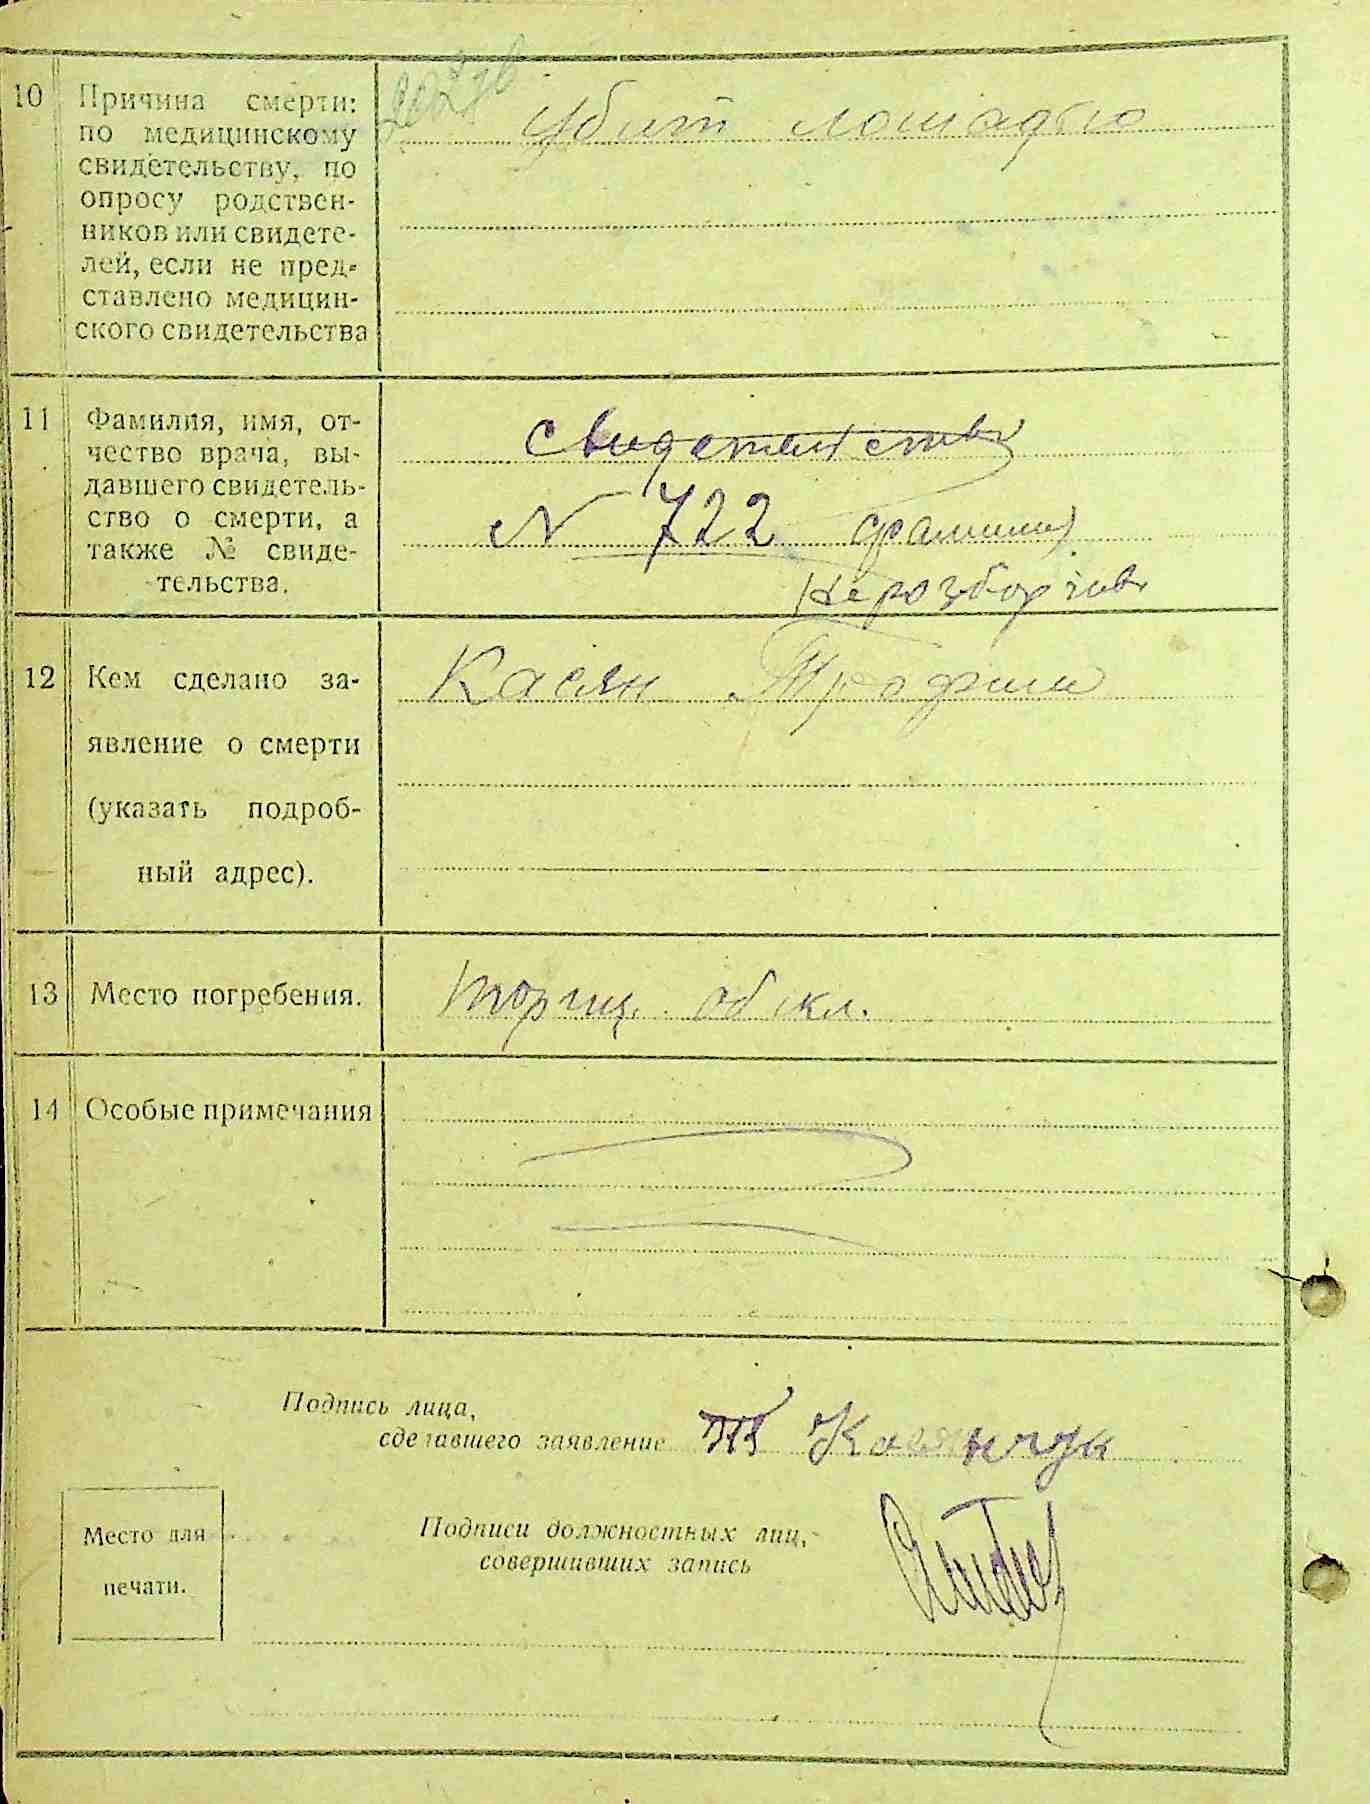 10 Причина смерти:
по медицинскому
свидетельству, по
опросу родствен-
ников или свидете-
лей, если не пред-
ставлено медицин-
ского свидетельства
Убит лошадью
11 Фамилия, имя, от-
чество врача, вы-
давшего свидетель-
ство о смерти, а
также № свиде-
тельства.
свидетельство
N 722 фамилия
Неразборчив
12 Кем сделано за-
явление о смерти
(указать подроб-
ный адрес).
Касян Трофим
13 Место погребения.
14 Особые примечания
Подпись лица,
сделавшего заявление Касянчук
Место для
печати.
Подписи должностных лиц,
совершивших запись